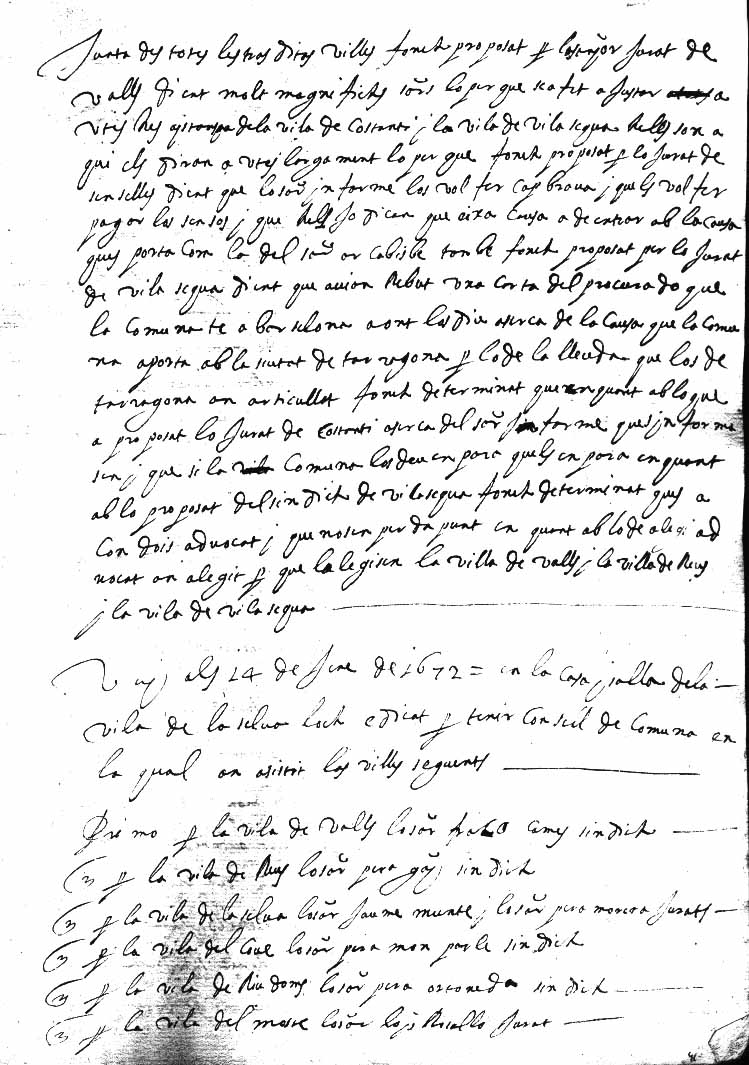 Junta des totes les tres dites villes fonch proposat p lo señor Jurat de
valls dient molt magnifichs sors lo per que se a fet a Justar a
vtes Res es de la vila de Costanti j la vila de vilasequa Rells son a
qui els diran a vtes largament lo per que fonch proposat p lo Jurat de
senselles dient que lo sor jn forme los vol fer cap breua j quels vol fer
pagar los sensos j que Rells Jo dican que aixa Causa a de entrar ab la Causa
ques porta Com la del sor ar cabisbe tanbe fonch proposat per lo Jurat
de vila sequa dient que auian Rebut vna Carta del procurado que
la Comuna te a barselona a ont los diu aserca de la Causa que la Comu
na aporta ab la siutat de tarragona p lo de la lleuda que los de
tarragona an articullat fonch determinat que en quant ab lo que
a proposat lo Jurat de Costanti aserca del sor jn forme ques jn forma
sen j que si la Comuna los deu en para quels en para en quant
ab lo proposat del sindich de vilasequa fonch determinat ques a
Con dois aduocat j que nosen perda punt en quant ab lo de alegi ad
uocat an alegit p que la legisen la villa de valls j la villa de Reus
j la vila de vila sequa
Vuy als 14 de June de 1672 = en la Casa j salla de la
vila de la selua loch edicat p tenir Consell de Comuna en
la qual an asistit les villes seguents
Primo p la vila de valls lo sor Camps sindich
p la vila de Reus lo sor pera sindich
p la vila de la selua lo sor Jaume munte j lo sor pera morera Jurats
p la vila del Coue lo sor pera mon parle sindich
p la vila de Riudoms lo sor pera ortoneda sindich
p la vila del lo sor Rosello Jurat